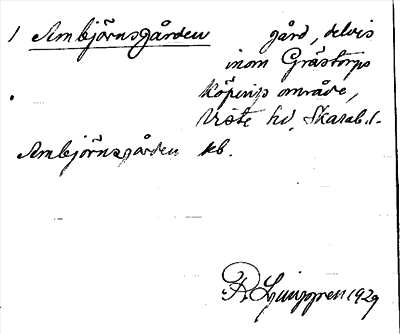 1 Ambjörnsgården gård, delvis
inom Grästorps
köpings område,
Viste hd, Skarab. l.
Ambjörnsgården kb.
R Ljunggren 1929